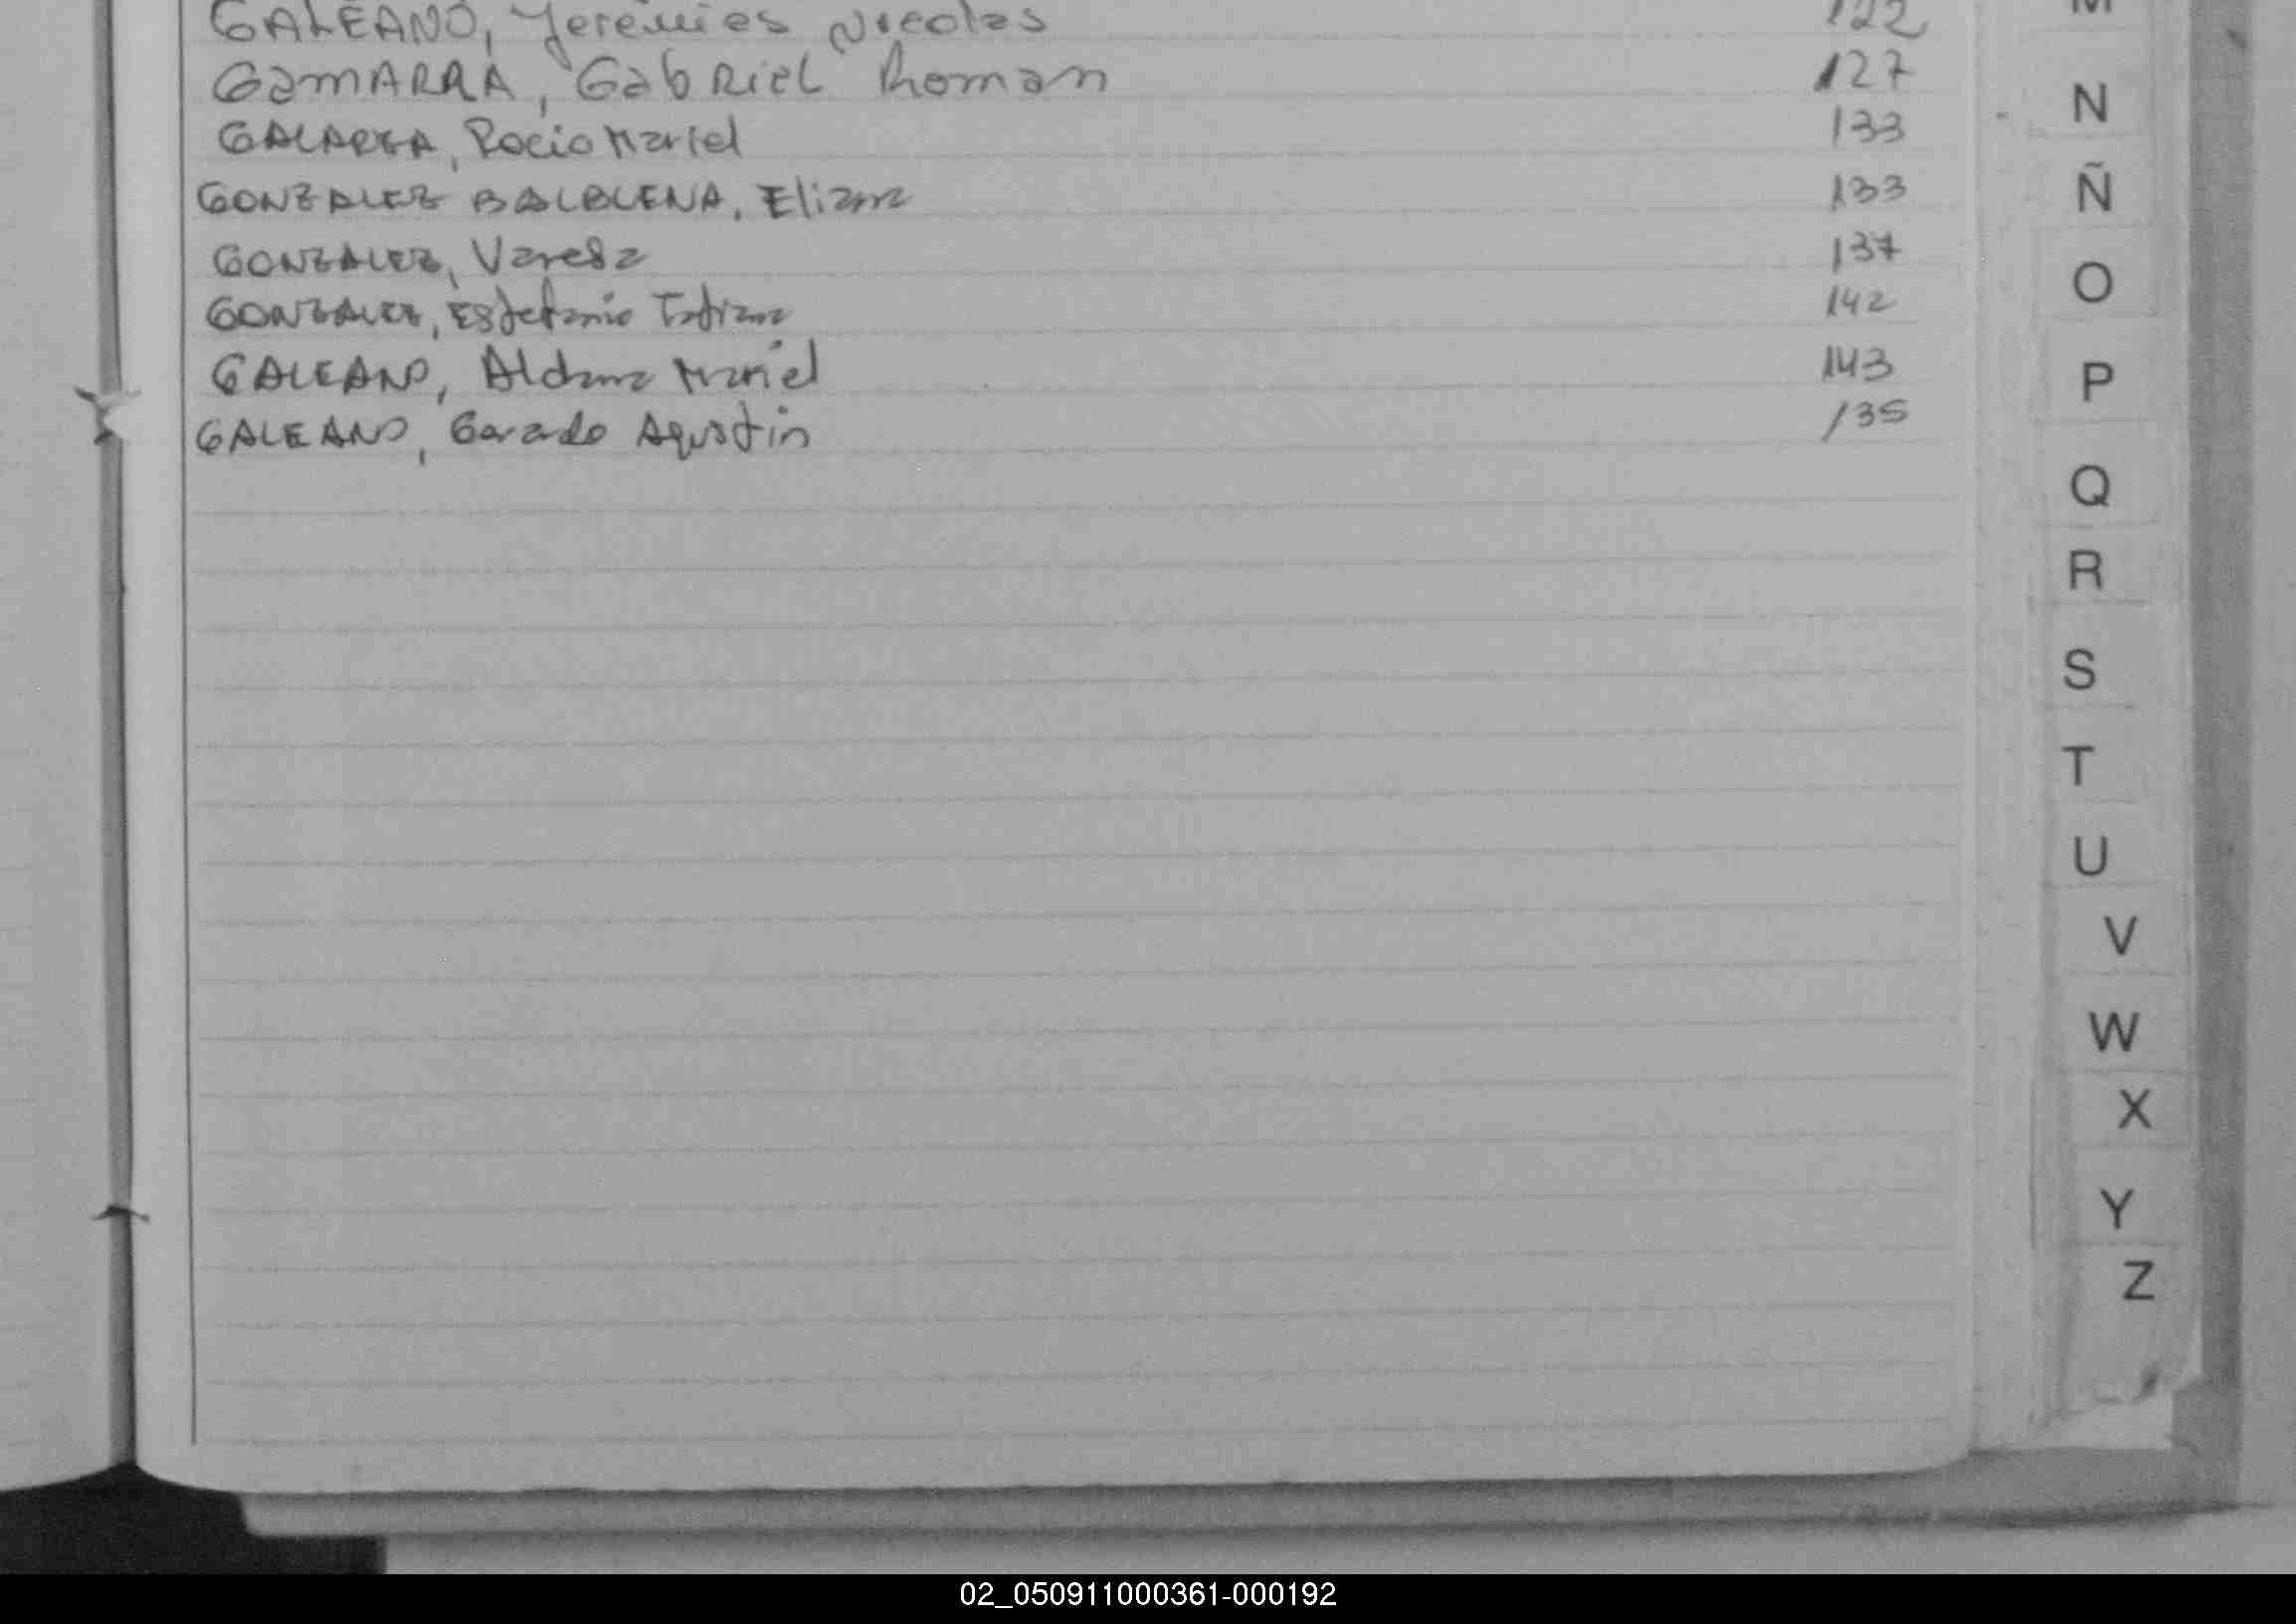 GALEANO, Jeremies Nicolas 122
GAMARRA, Gabriel Roman 127
GALARZA, Rocio Mariel 133
GONZALEZ BALBUENA, Eliana 133
GONZALEZ, 137
GONZALEZ, Estefania Tatiana 142
GALEANO, Aldana Mariel 143
GALEANO, Gerardo Agustin 135
M
N
Ñ
O
P
Q
R
S
T
U
V
W
X
Y
Z
02_050911000361-000192